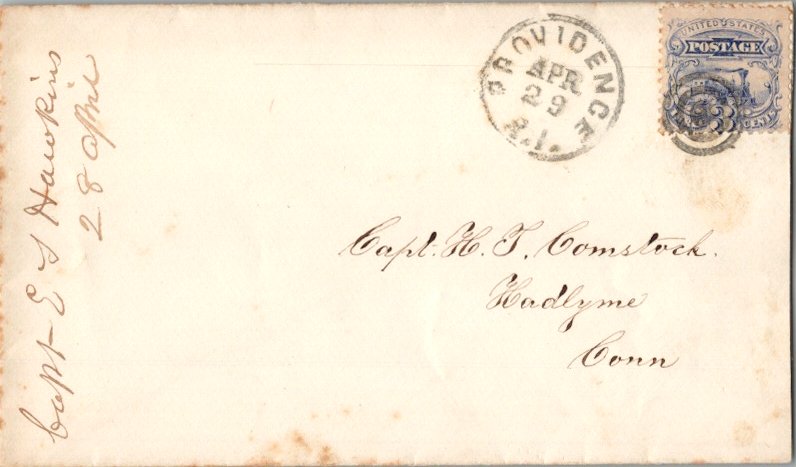 Capt E S Hawkins
28 April
PROVIDENCE
APR
29
R.I.
UNITED STATES
POSTAGE
3
CENTS
Capt. H. T. Comstock.
Hadlyme
Conn